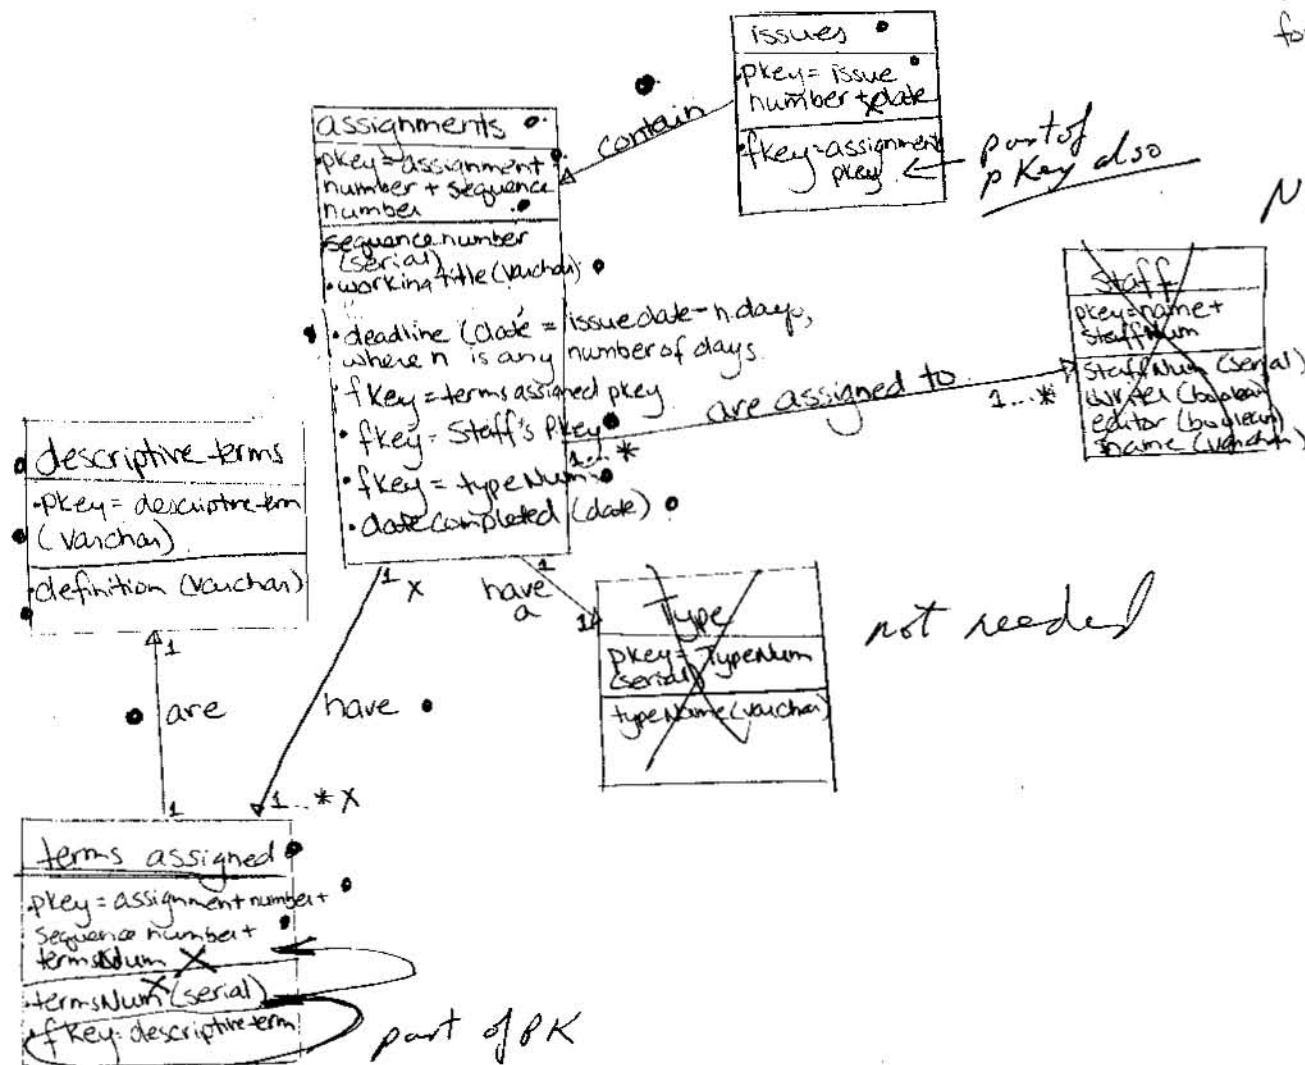 issues
pkey = issue
number + date
fkey = assignment
pkey
part of
pKey also
fo
N
contain
assignments
pkey = assignment
number + sequence
number
sequence number
(serial)
working title (varchar)
deadline (date = issue date - n days,
where n is any number of days.
fkey = terms assigned pkey
fkey = Staff's Pkey
fkey = typeNum
date completed (date)
are assigned to
1...*
1...*
Staff
pkey = name +
StaffNum
StaffNum (serial)
writer (boolean)
editor (boolean)
name (varchar)
descriptive terms
pkey = descriptive term
(varchar)
definition (varchar)
1
X
have
a
1
1
Type
pkey = TypeNum
(serial)
typeName (varchar)
not needed
1
are
1
have
1...* X
terms assigned
pkey = assignment number +
sequence number +
termsNum X
X
termsNum (serial)
fkey = descriptive term
part of PK